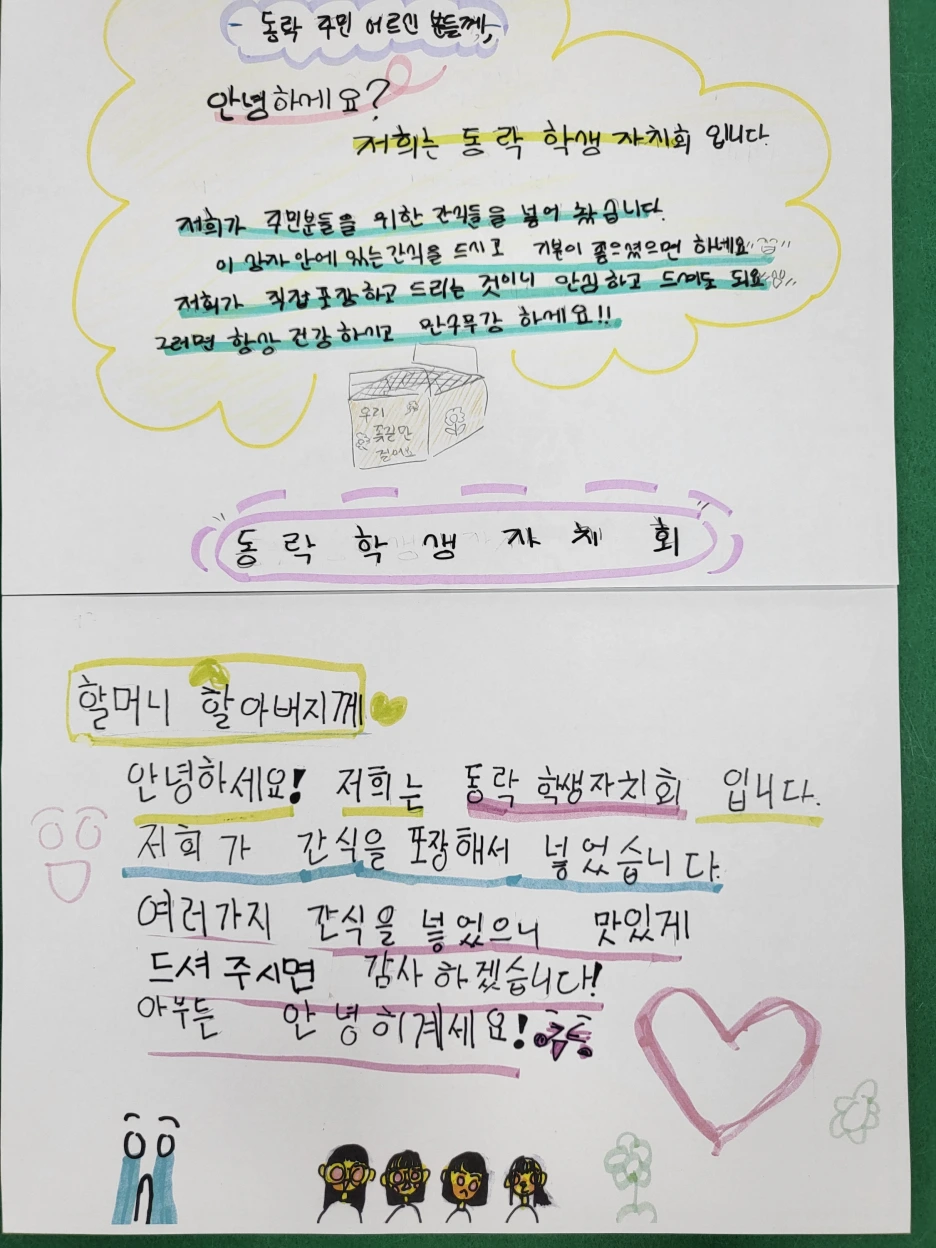 동락 주민 어르신 분들께,
안녕하세요?
저희는 동락 학생 자치회 입니다.
저희가 주민분들을 위한 간식들을 넣어 놨습니다.
이 상자 안에 있는 간식을 드시고 기분이 좋으셨으면 하네요
저희가 직접 포장하고 드리는 것이니 안심하고 드셔도 되요
그러면 항상 건강하시고 만수무강 하세요!!
우리
꽃길만
걸어요
동락 학생 자치회
할머니 할아버지께
안녕하세요! 저희는 동락 학생자치회 입니다.
저희가 간식을 포장해서 넣었습니다.
여러가지 간식을 넣었으니 맛있게
드셔 주시면 감사하겠습니다!
아무튼 안녕히계세요!